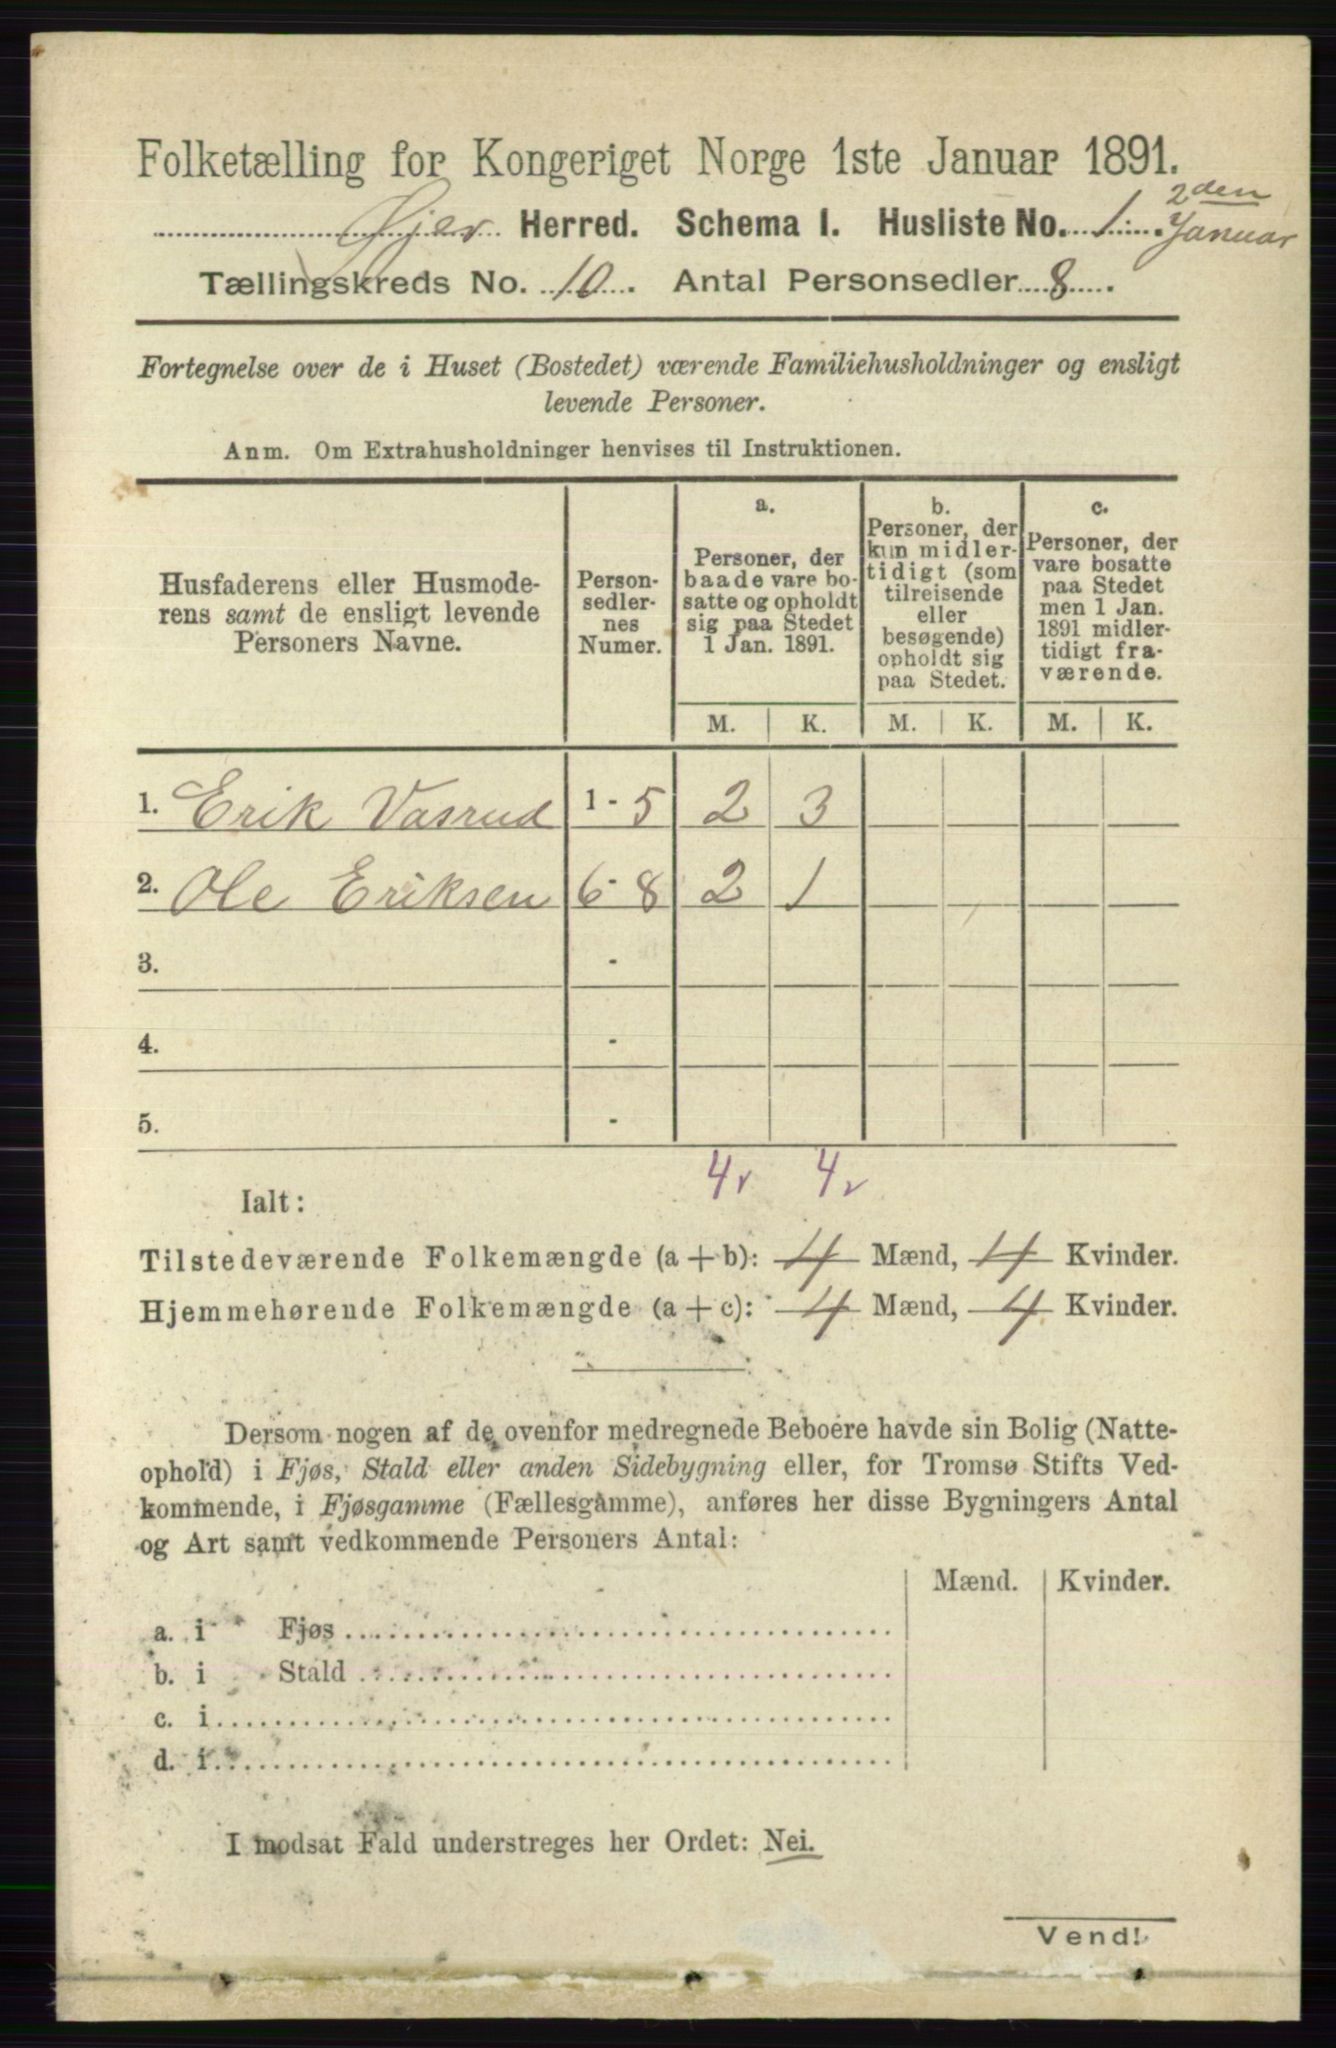 Folketælling for Kongeriget Norge 1ste Januar 1891.
Øjer Herred. Schema I. Husliste No. 1. 2den Januar
Tællingskreds No. 10. Antal Personsedler 8.
Fortegnelse over de i Huset (Bostedet) værende Familiehusholdninger og ensligt
levende Personer.
Anm. Om Extrahusholdninger henvises til Instruktionen.
Husfaderens eller Husmode-
rens samt de ensligt levende
Personers Navne.
Person-
sedler-
nes
Numer.
a.
Personer, der
baade vare bo-
satte og opholdt
sig paa Stedet
1 Jan. 1891.
b.
Personer, der
kun midler-
tidigt (som
tilreisende
eller
besøgende)
opholdt sig
paa Stedet.
c.
Personer, der
vare bosatte
paa Stedet
men 1 Jan.
1891 midler-
tidigt fra-
værende.
M. K. M. K. M. K.
1. Erik Vasrud 1-5 2 3
2. Ole Eriksen 6-8 2 1
3. -
4. -
5. -
4v 4v
Ialt:
Tilstedeværende Folkemængde (a+b): 4 Mænd, 4 Kvinder.
Hjemmehørende Folkemængde (a+c): 4 Mænd, 4 Kvinder.
Dersom nogen af de ovenfor medregnede Beboere havde sin Bolig (Natte-
ophold) i Fjøs, Stald eller anden Sidebygning eller, for Tromsø Stifts Ved-
kommende, i Fjøsgamme (Fællesgamme), anføres her disse Bygningers Antal
og Art samt vedkommende Personers Antal:
Mænd. Kvinder.
a. i Fjøs
b. i Stald
c. i
d. i
I modsat Fald understreges her Ordet: Nei.
Vend!